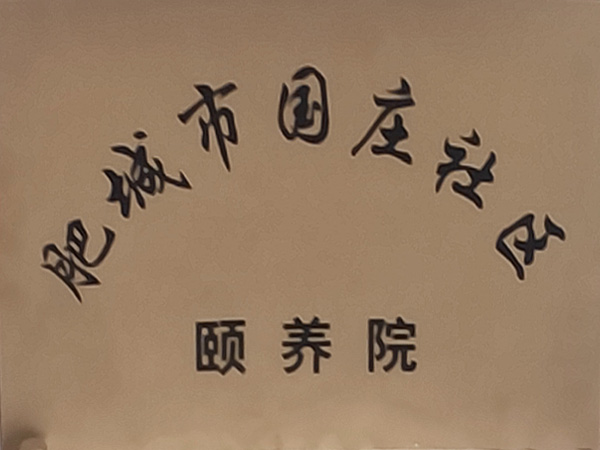 肥城市国庄社区
颐养院